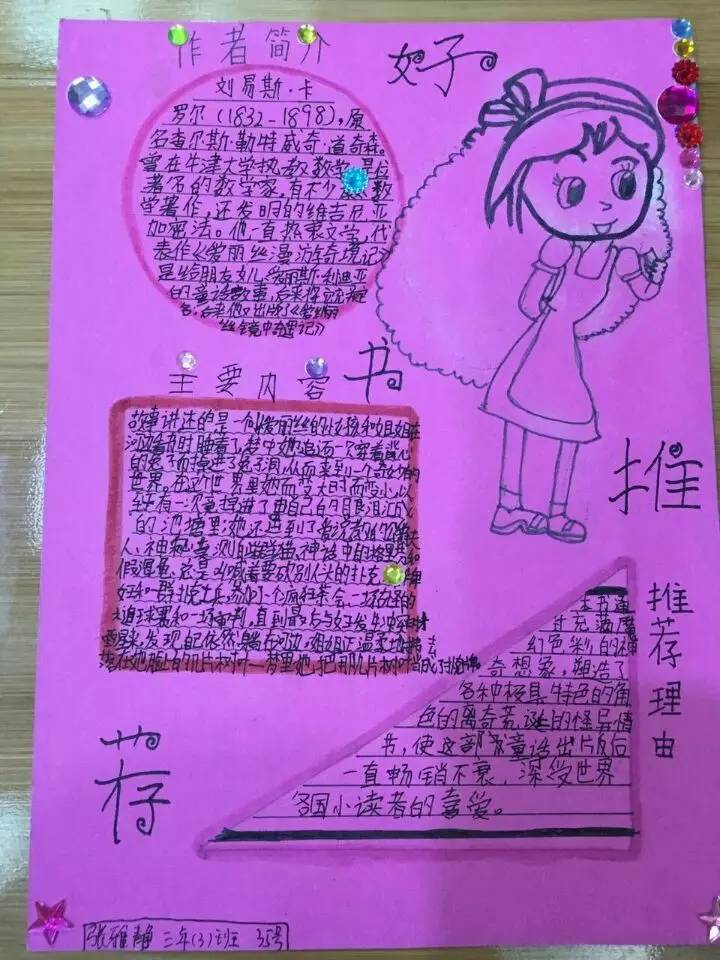 好
书
推
荐
作者简介
刘易斯·卡
罗尔（1832-1898），原
名查尔斯·勒特威奇·道奇森。
曾在牛津大学执教数学，是位
著名的数学家，有不少数
学著作，还发明的维吉尼亚
加密法。他一直热衷文学，代
表作《爱丽丝漫游奇境记》
是给朋友女儿爱丽斯·利迪亚
的童话故事，后来
名，后来他又出版了《爱丽
丝镜中奇遇记》
主要内容
故事讲述的是一个叫爱丽丝的女孩和姐姐在
河边看书时睡着了，梦中她追逐一次穿着背心
的兔子而掉进了兔子洞，从而来到一个奇妙的
世界。在这个世界里她时而变大时而变小，以
至于有一次竟掉进了由自己的眼泪汇成
的池塘里；她还遇到了
人、神秘莫测的
假海龟、总是叫喊着要砍别人头的扑克牌
和一群扑克士兵，参加了一个疯狂茶会、一场
球赛和一场审判，直到最后与女王发生冲突时
醒来，发现自己依然躺在河边，姐姐正温柔地拂去
落在她脸上的几片树叶——梦里她把那几片树叶当成了扑克牌。
推荐理由
本书通
过充满魔
幻色彩的神
奇想象，塑造了
各种极具特色的角
色的离奇荒诞的怪异情
节，使这部童话出片反后
一直畅销不衰，深受世界
各国小读者的喜爱。
张雅静 三年(3)班 35号